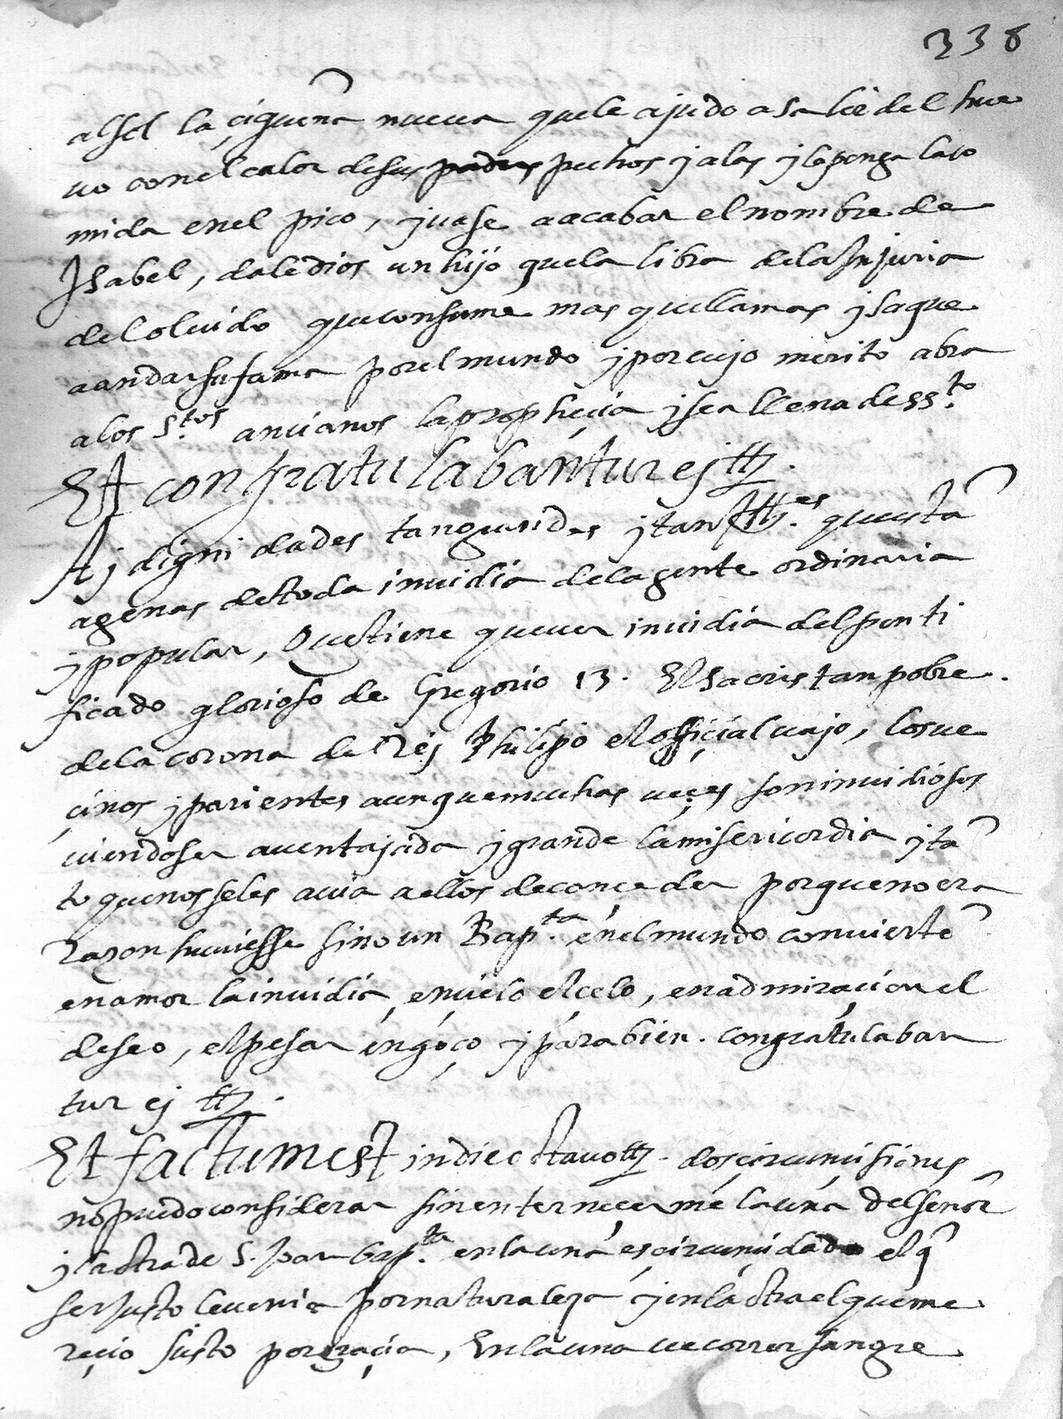 338
al sol la çigueña nueua que le ajudo a salir del hue
uo con el calor de sus padres pechos j alas j le ponga la co
mida en el pico, j uase a acabar el nombre de
Isabel, dale dios un hijo que la libra de la Injuria
del oluido que consume mas que llamas j saque
a andar su fama por el mundo j por cujo merito abra
a los S.tos ancianos la propheçia j sea llena de ss.to
Et congratulabantur ej
Aj dignidades tan grandes j tan que esta
agenas de toda inuidia de la gente ordinaria
j popular, Que tiene que uer inuidia del ponti
ficado glorioso de Gregorio 13. El sacristan pobre.
de la corona de Rej Philipo el offiçial uajo, los ue
çinos j parientes aunque muchas ueçes son inuidiosos
uiendose auentajada j grande la misericordia j ta
to que no se les auia a ellos de conçeder porque no era
Razon huuiesse sino un Bap.ta en el mundo conuierte
en amor la inuidia, en çielo el celo, en admiraçion el
deseo, el pesar en goço j parabien. congratulaban
tur ej
Et factum est in die octauo dos circunçisiones
no puedo considerar sin enterneçerme la una del señor
j la otra de S. Joan Bap.ta en la una es çircunçidado el q
ser Justo le uenia por naturaleza j en la otra el que me
reçio Justo por graçia, En la una ue correr sangre